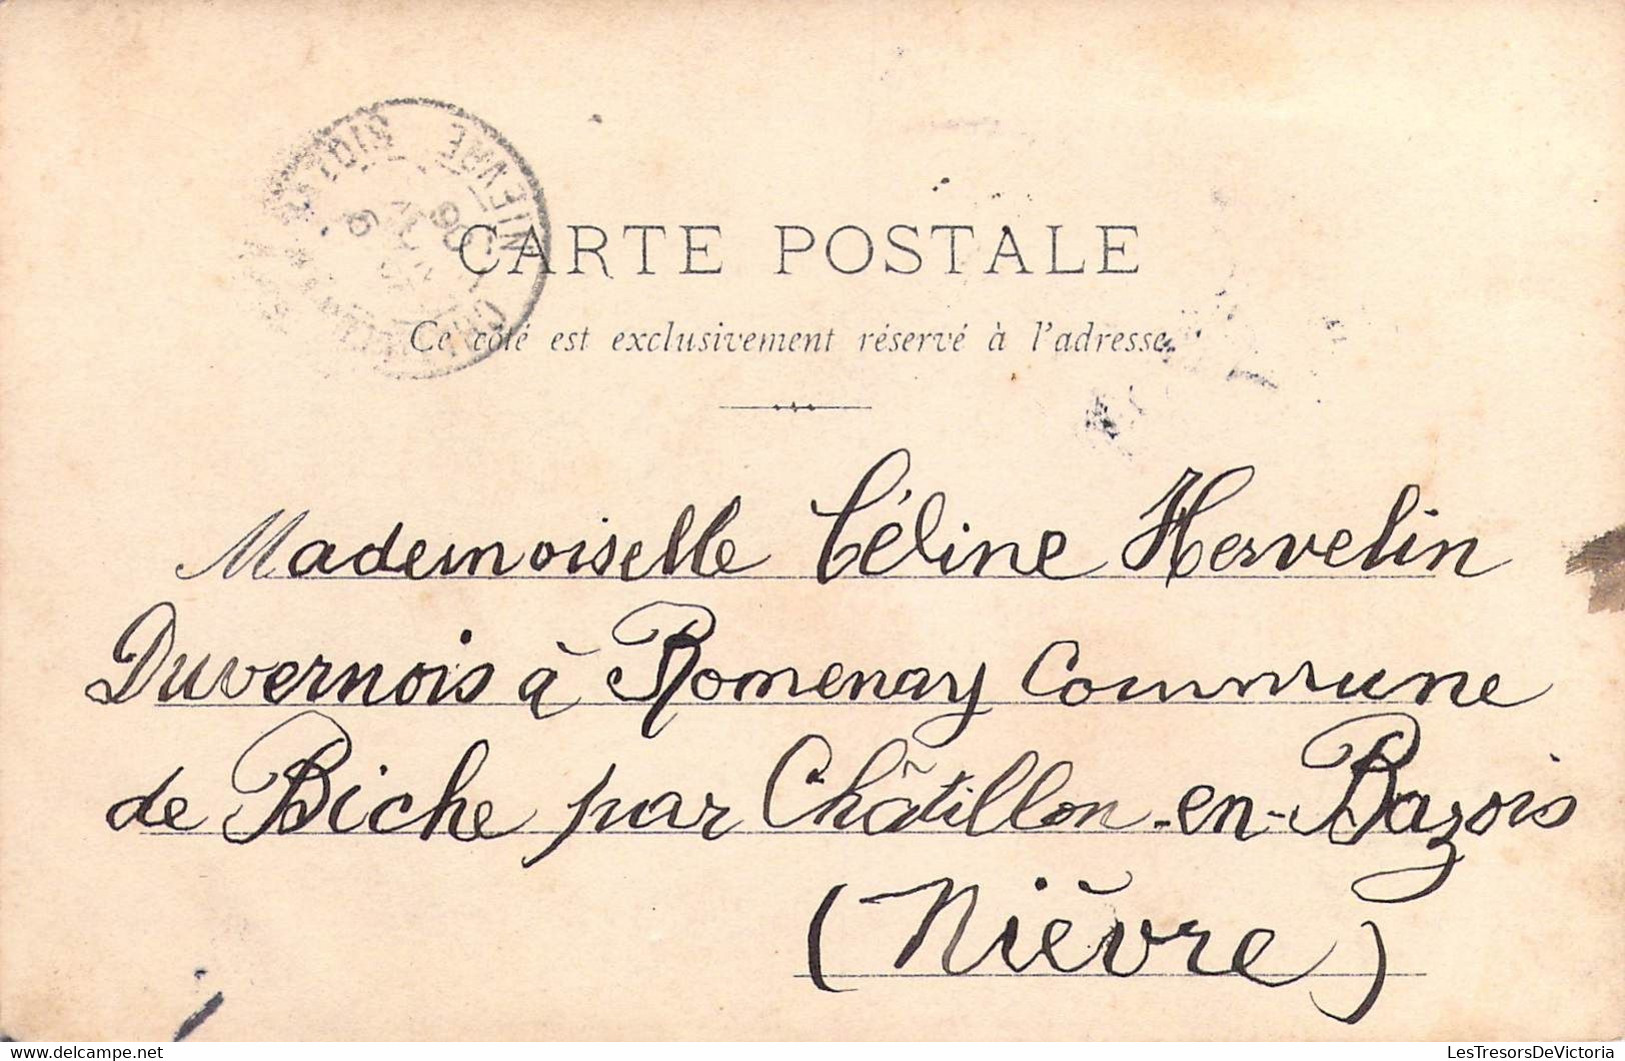 CARTE POSTALE
Ce côté est exclusivement réservé à l'adresse
Mademoiselle Céline Hervelin
Duvernois à Romenay Commune
de Biche par Châtillon-en-Bazois
(Nièvre)
NIEVRE
LesTresorsDeVictoria